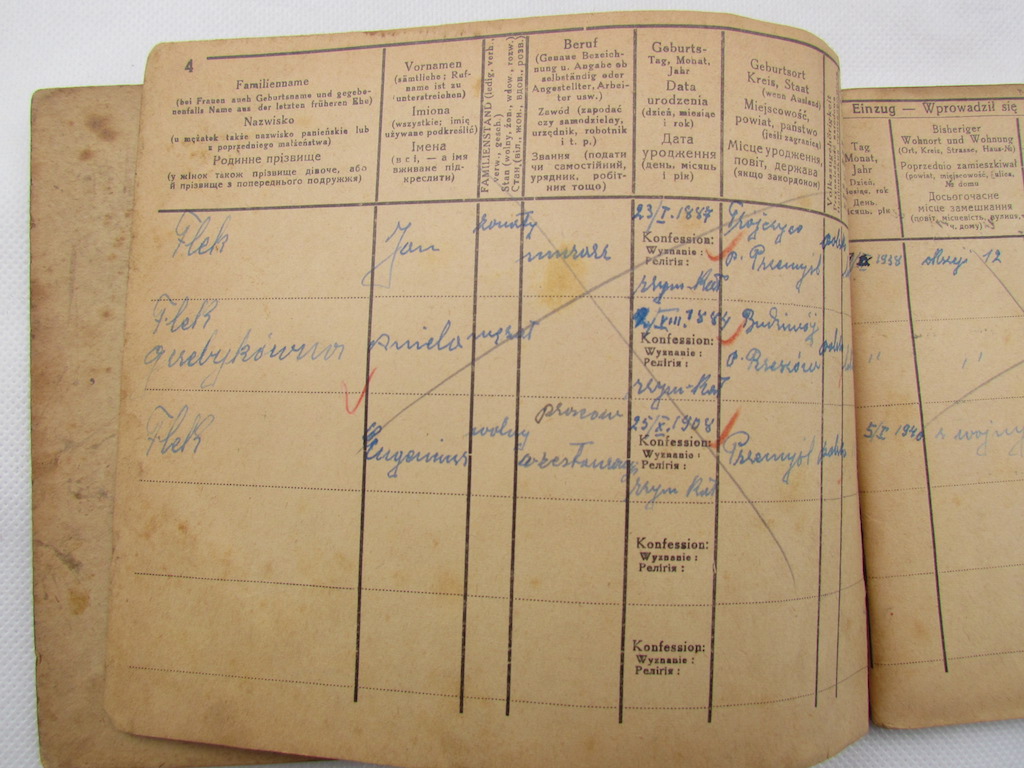 4
Familienname
(bei Frauen auch Geburtsname und gegebe-
nenfalls Name aus der letzten früheren Ehe)
Nazwisko
(u mężatek także nazwisko panieńskie lub
z poprzedniego małżeństwa)
Родинне прізвище
(у жінок також прізвище дівоче, або
й прізвище з попереднього подружжя)
Vornamen
(sämtliche; Ruf-
name ist zu
unterstreichen)
Imiona
(wszystkie; imię
używane podkreślić)
Імена
(всі, — а імя
вживане під-
креслити)
FAMILIENSTAND (ledig, verh.,
verw., gesch.)
Stan (wolny, żon., wdow., rozw.)
Стан (віл., жон., вдов., розв.)
Beruf
(Genaue Bezeich-
nung u. Angabe ob
selbständig oder
Angestellter, Arbei-
ter usw.)
Zawód (zapodać
czy samodzielny,
urzędnik, robotnik
i t. p.)
Звання (подати
чи самостійний,
урядник, робіт-
ник тощо)
Geburts-
Tag, Monat,
Jahr
Data
urodzenia
(dzień, miesiąc
i rok)
Дата
уродження
(день, місяць
і рік)
Geburtsort
Kreis, Staat
(wenn Ausland)
Miejscowość,
powiat, państwo
(jeśli zagranicą)
Місце уродження,
повіт, держава
(якщо закордоном)
Einzug — Wprowadził się
Tag
Monat,
Jahr
Dzień,
miesiąc, rok
День,
місяць, рік
Bisheriger
Wohnort und Wohnung
(Ort, Kreis, Strasse, Haus-№)
Poprzednio zamieszkiwał
(powiat, miejscowość, ulica,
№ domu
Досьогочасне
місце замешкання
Flek
Jan
żonaty
murarz
23/I.1887
Konfession:
Wyznanie:
Релігія:
rzym-Kat
p. Przemyśl
1938
12
Flek
Aniela
mężat
1884
Konfession:
Wyznanie:
Релігія:
rzym-Kat
p. Rzeszów
"
"
Flek
Eugeniusz
wolny
25/X.1908
Konfession:
Wyznanie:
Релігія:
rzym Kat
Przemyśl
5/X 1940
z wojny
Konfession:
Wyznanie:
Релігія:
Konfession:
Wyznanie:
Релігія: